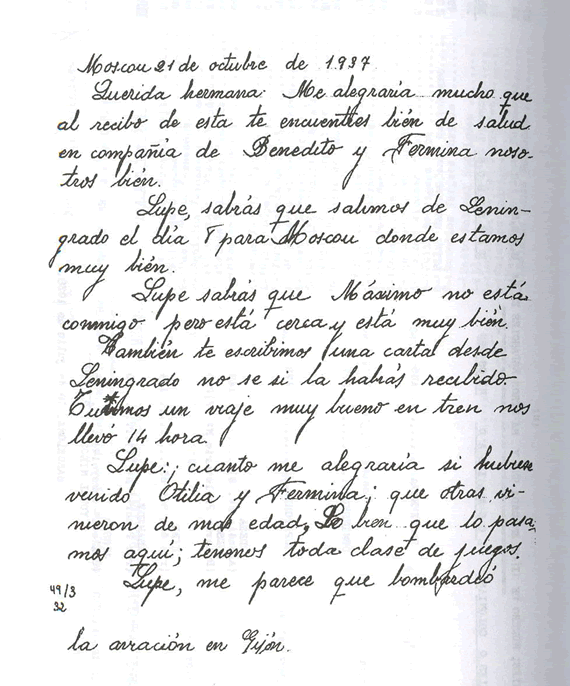 Moscou 21 de octubre de 1.937.
Querida hermana: Me alegraría mucho que
al recibo de esta te encuentres bién de salud
en compañia de Benedito y Fermina noso-
tros bién.
Lupe, sabrás que salimos de Lenin-
grado el día 8 para Moscou donde estamos
muy bién.
Lupe sabrás que Máximo no está
conmigo pero está cerca y está muy bién.
También te escribimos una carta desde
Leningrado no se si la habrás recibido
Tuvimos un viaje muy bueno en tren nos
llevó 14 hora.
Lupe: ¡ cuanto me alegraría si hubiera
venido Otilia y Fermina; que otras vi-
nieron de mas edad, Lo bien que lo pasa
mos aquí; tenemos toda clase de juegos.
Lupe, me parece que bombardeó
49/3
32
la aviación en Gijón.